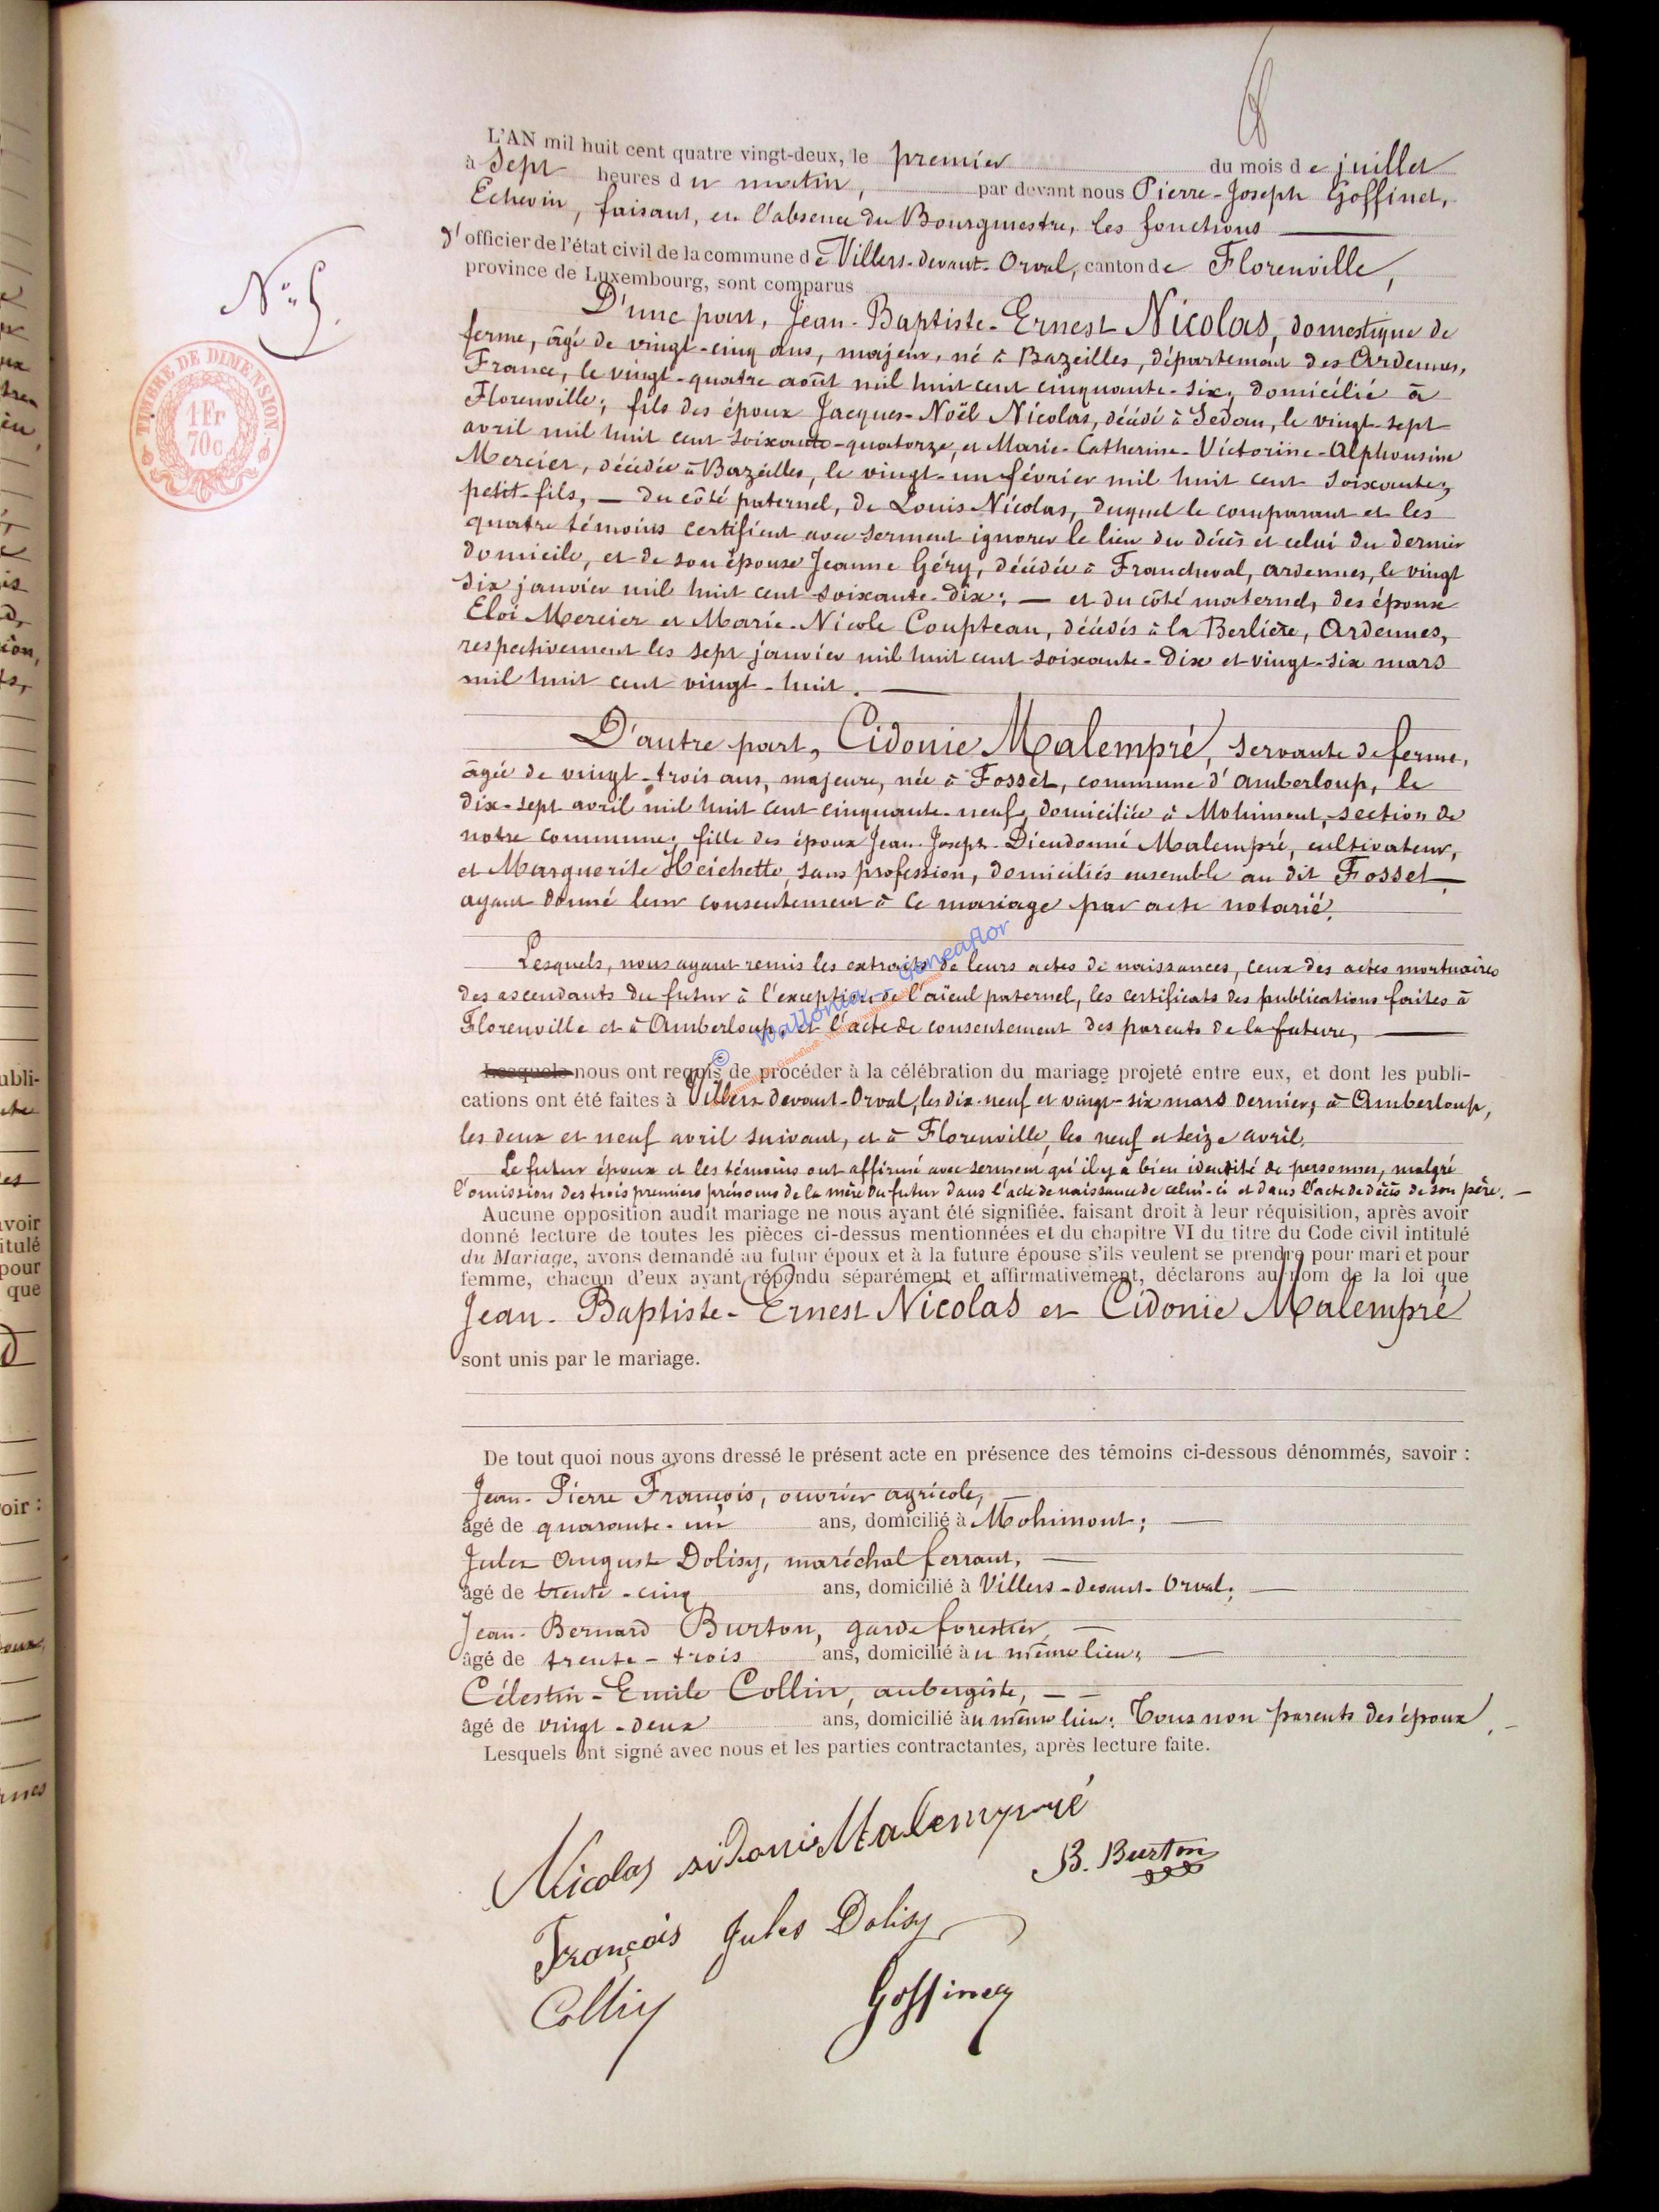 6
L'AN mil huit cent quatre vingt-deux, le premier du mois de juillet
à sept heures du matin, par devant nous Pierre-Joseph Goffinet,
Echevin, faisant, en l'absence du Bourgmestre, les fonctions
d'officier de l'état civil de la commune de Villers-devant-Orval, canton de Florenville,
province de Luxembourg, sont comparus
N° 5.
TIMBRE DE DIMENSION
1 Fr
70c
D'une part, Jean-Baptiste-Ernest Nicolas, domestique de
ferme, âgé de vingt-cinq ans, majeur, né à Bazeilles, département des Ardennes,
France, le vingt-quatre août mil huit cent cinquante-six, domicilié à
Florenville; fils des époux Jacques-Noël Nicolas, décédé à Sedan, le vingt-sept
avril mil huit cent soixante-quatorze, et Marie-Catherine-Victorine-Alphonsine
Mercier, décédée à Bazeilles, le vingt-un février mil huit cent soixante;
petit-fils, — du côté paternel, de Louis Nicolas, duquel le comparant et les
quatre témoins certifient avec serment ignorer le lieu du décès et celui du dernier
domicile, et de son épouse Jeanne Géry, décédée à Francheval, Ardennes, le vingt
dix janvier mil huit cent soixante-dix; — et du côté maternel, des époux
Eloi Mercier et Marie-Nicole Coupteau, décédés à la Berlière, Ardennes,
respectivement les sept janvier mil huit cent soixante-dix et vingt-six mars
mil huit cent vingt-huit. —
D'autre part, Cidonie Malempré, servante de ferme,
âgée de vingt-trois ans, majeure, née à Fosset, commune d'Amberloup, le
dix-sept avril mil huit cent cinquante-neuf, domiciliée à Mohimont, section de
notre commune; fille des époux Jean-Joseph-Dieudonné Malempré, cultivateur,
et Marguerite Heichette, sans profession, domiciliés ensemble au dit Fosset —
ayant donné leur consentement à ce mariage par acte notarié.
Lesquels, nous ayant remis les extraits de leurs actes de naissances, ceux des actes mortuaires
des ascendants du futur à l'exception de l'aïeul paternel, les certificats des publications faites à
Florenville et à Amberloup, et l'acte de consentement des parents de la future, —
© Wallonia - Généaflor
Lesquels nous ont requis de procéder à la célébration du mariage projeté entre eux, et dont les publi-
cations ont été faites à Villers-devant-Orval, les dix-neuf et vingt-six mars dernier, à Amberloup,
les deux et neuf avril suivant, et à Florenville, les neuf et seize avril.
Le futur époux et les témoins ont affirmé avec serment qu'il y a bien identité de personnes, malgré
l'omission des trois premiers prénoms de la mère du futur dans l'acte de naissance de celui-ci et dans l'acte de décès de son père. —
Aucune opposition audit mariage ne nous ayant été signifiée, faisant droit à leur réquisition, après avoir
donné lecture de toutes les pièces ci-dessus mentionnées et du chapitre VI du titre du Code civil intitulé
du Mariage, avons demandé au futur époux et à la future épouse s'ils veulent se prendre pour mari et pour
femme, chacun d'eux ayant répondu séparément et affirmativement, déclarons au nom de la loi que
Jean-Baptiste-Ernest Nicolas et Cidonie Malempré
sont unis par le mariage.
De tout quoi nous avons dressé le présent acte en présence des témoins ci-dessous dénommés, savoir :
Jean-Pierre François, ouvrier agricole, —
âgé de quarante-un ans, domicilié à Mohimont; —
Jules Auguste Dolisy, maréchal ferrant, —
âgé de trente-cinq ans, domicilié à Villers-devant-Orval; —
Jean-Bernard Burton, garde forestier, —
âgé de trente-trois ans, domicilié au même lieu; —
Célestin-Emile Collin, aubergiste, — —
âgé de vingt-deux ans, domicilié au même lieu. Tous non parents des époux. —
Lesquels ont signé avec nous et les parties contractantes, après lecture faite.
Nicolas sidonie Malempré
B. Burton
François Jules Dolisy
Collin Goffinet